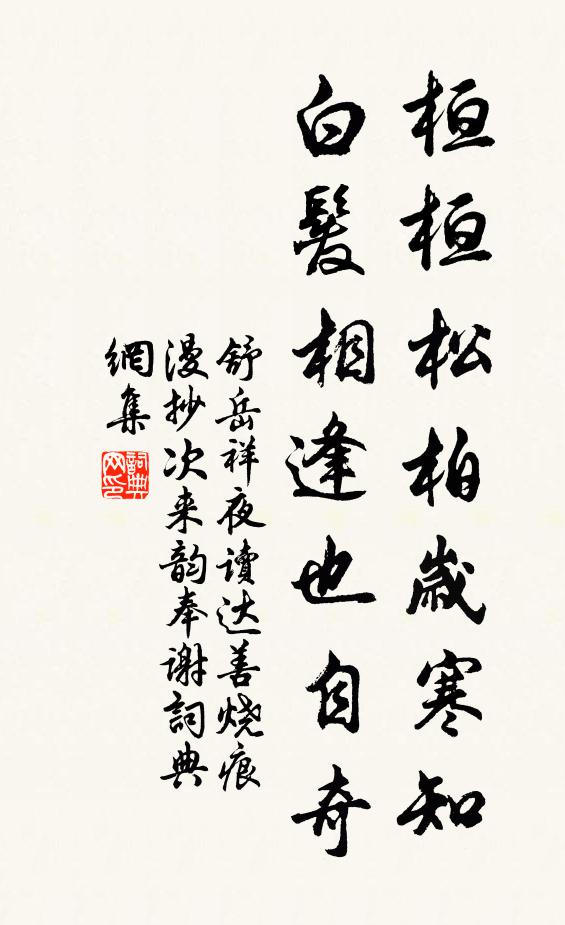 桓桓松柏歲寒知
白髮相逢也自奇
舒岳祥夜讀达善烧痕
漫抄次来韵奉謝詞典
網集
詞典网印